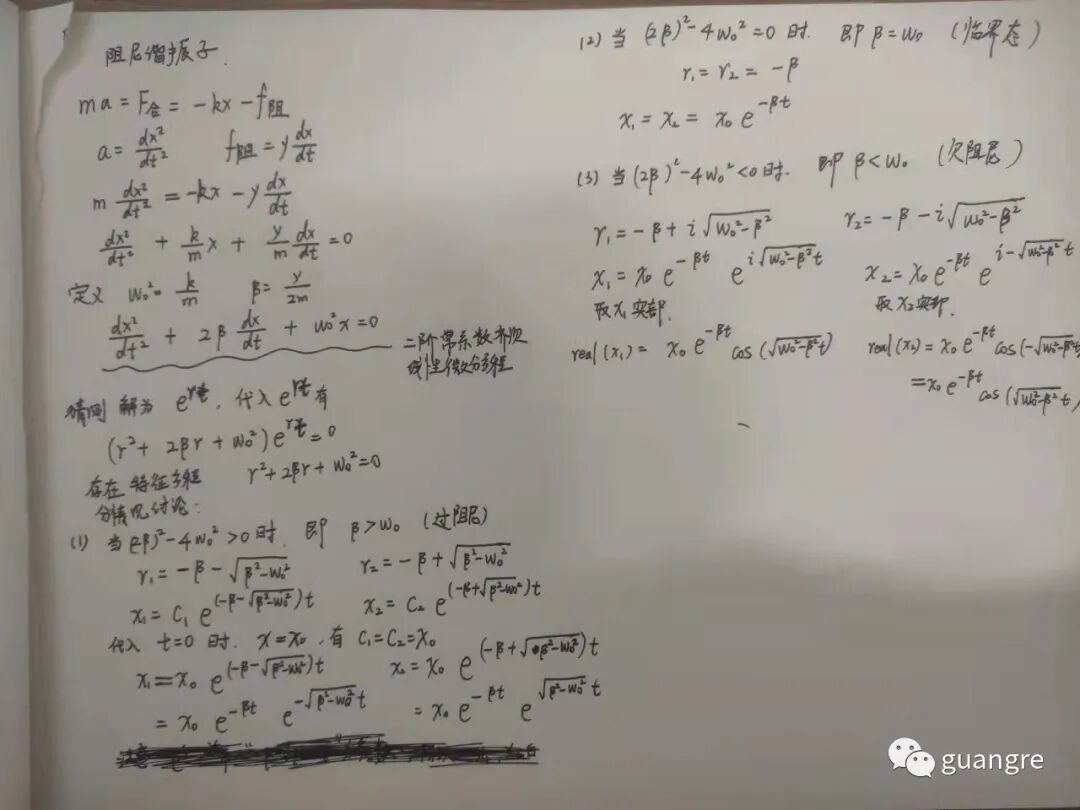 阻尼谐振子.
ma = F合 = -kx - f阻
a = dx²/dt²    f阻 = γ dx/dt
m dx²/dt² = -kx - γ dx/dt
dx²/dt² + k/m x + γ/m dx/dt = 0
定义 ω₀² = k/m    β = γ/2m
dx²/dt² + 2β dx/dt + ω₀²x = 0
二阶常系数齐次
线性微分方程
猜测 解为 e^{rt}, 代入 e^{rt} 有
(r² + 2βr + ω₀²) e^{rt} = 0
存在 特征方程    r² + 2βr + ω₀² = 0
分情况讨论:
(1) 当 (2β)² - 4ω₀² > 0 时. 即 β > ω₀ (过阻尼)
r₁ = -β - √(β²-ω₀²)    r₂ = -β + √(β²-ω₀²)
x₁ = C₁ e^{(-β-√(β²-ω₀²))t}    x₂ = C₂ e^{(-β+√(β²-ω₀²))t}
代入 t=0 时. x=x₀, 有 C₁=C₂=x₀
x₁ = x₀ e^{(-β-√(β²-ω₀²))t}    x₂ = x₀ e^{(-β+√(β²-ω₀²))t}
= x₀ e^{-βt} e^{-√(β²-ω₀²) t}    = x₀ e^{-βt} e^{√(β²-ω₀²) t}
(2) 当 (2β)² - 4ω₀² = 0 时. 即 β = ω₀ (临界态)
r₁ = r₂ = -β
x₁ = x₂ = x₀ e^{-βt}
(3) 当 (2β)² - 4ω₀² < 0 时. 即 β < ω₀ (欠阻尼)
r₁ = -β + i√(ω₀²-β²)    r₂ = -β - i√(ω₀²-β²)
x₁ = x₀ e^{-βt} e^{i√(ω₀²-β²) t}    x₂ = x₀ e^{-βt} e^{i-√(ω₀²-β²) t}
取 x₁ 实部.    取 x₂ 实部.
real(x₁) = x₀ e^{-βt} cos(√(ω₀²-β²) t)    real(x₂) = x₀ e^{-βt} cos(-√(ω₀²-β²) t
= x₀ e^{-βt} cos(√(ω₀²-β²) t)
guangre